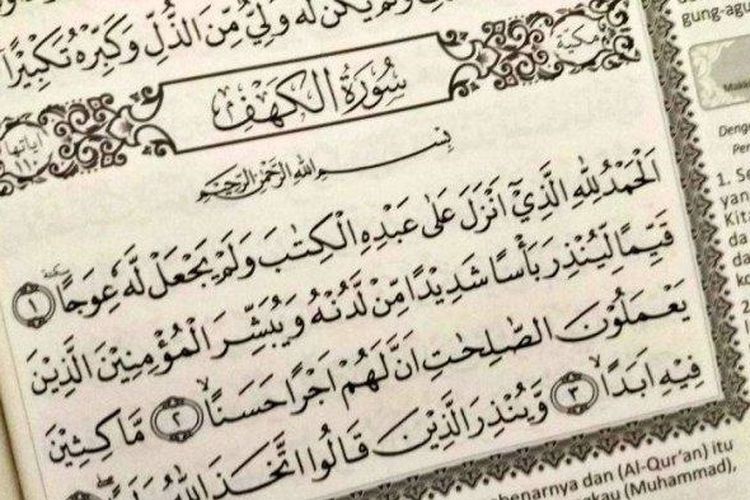 وَلَمْ يَكُنْ لَّهٗ وَلِيٌّ مِّنَ الذُّلِّ وَكَبِّرْهُ تَكْبِيْرًا
مكية
سُوْرَةُ الْكَهْفِ
اياتها ١١٠
بِسْمِ اللّٰهِ الرَّحْمٰنِ الرَّحِيْمِ
اَلْحَمْدُ لِلّٰهِ الَّذِيْٓ اَنْزَلَ عَلٰى عَبْدِهِ الْكِتٰبَ وَلَمْ يَجْعَلْ لَّهٗ عِوَجًا ۜ ١
قَيِّمًا لِّيُنْذِرَ بَأْسًا شَدِيْدًا مِّنْ لَّدُنْهُ وَيُبَشِّرَ الْمُؤْمِنِيْنَ الَّذِيْنَ
يَعْمَلُوْنَ الصّٰلِحٰتِ اَنَّ لَهُمْ اَجْرًا حَسَنًاۙ ٢ مَّاكِثِيْنَ
فِيْهِ اَبَدًاۙ ٣ وَّيُنْذِرَ الَّذِيْنَ قَالُوا اتَّخَذَ اللّٰهُ وَلَدًا
gung-agu
Denga
Per
1. Se
yan
Kit
da
da
k
benarnya dan (Al-Qur'an) itu
gkau (Muhammad),